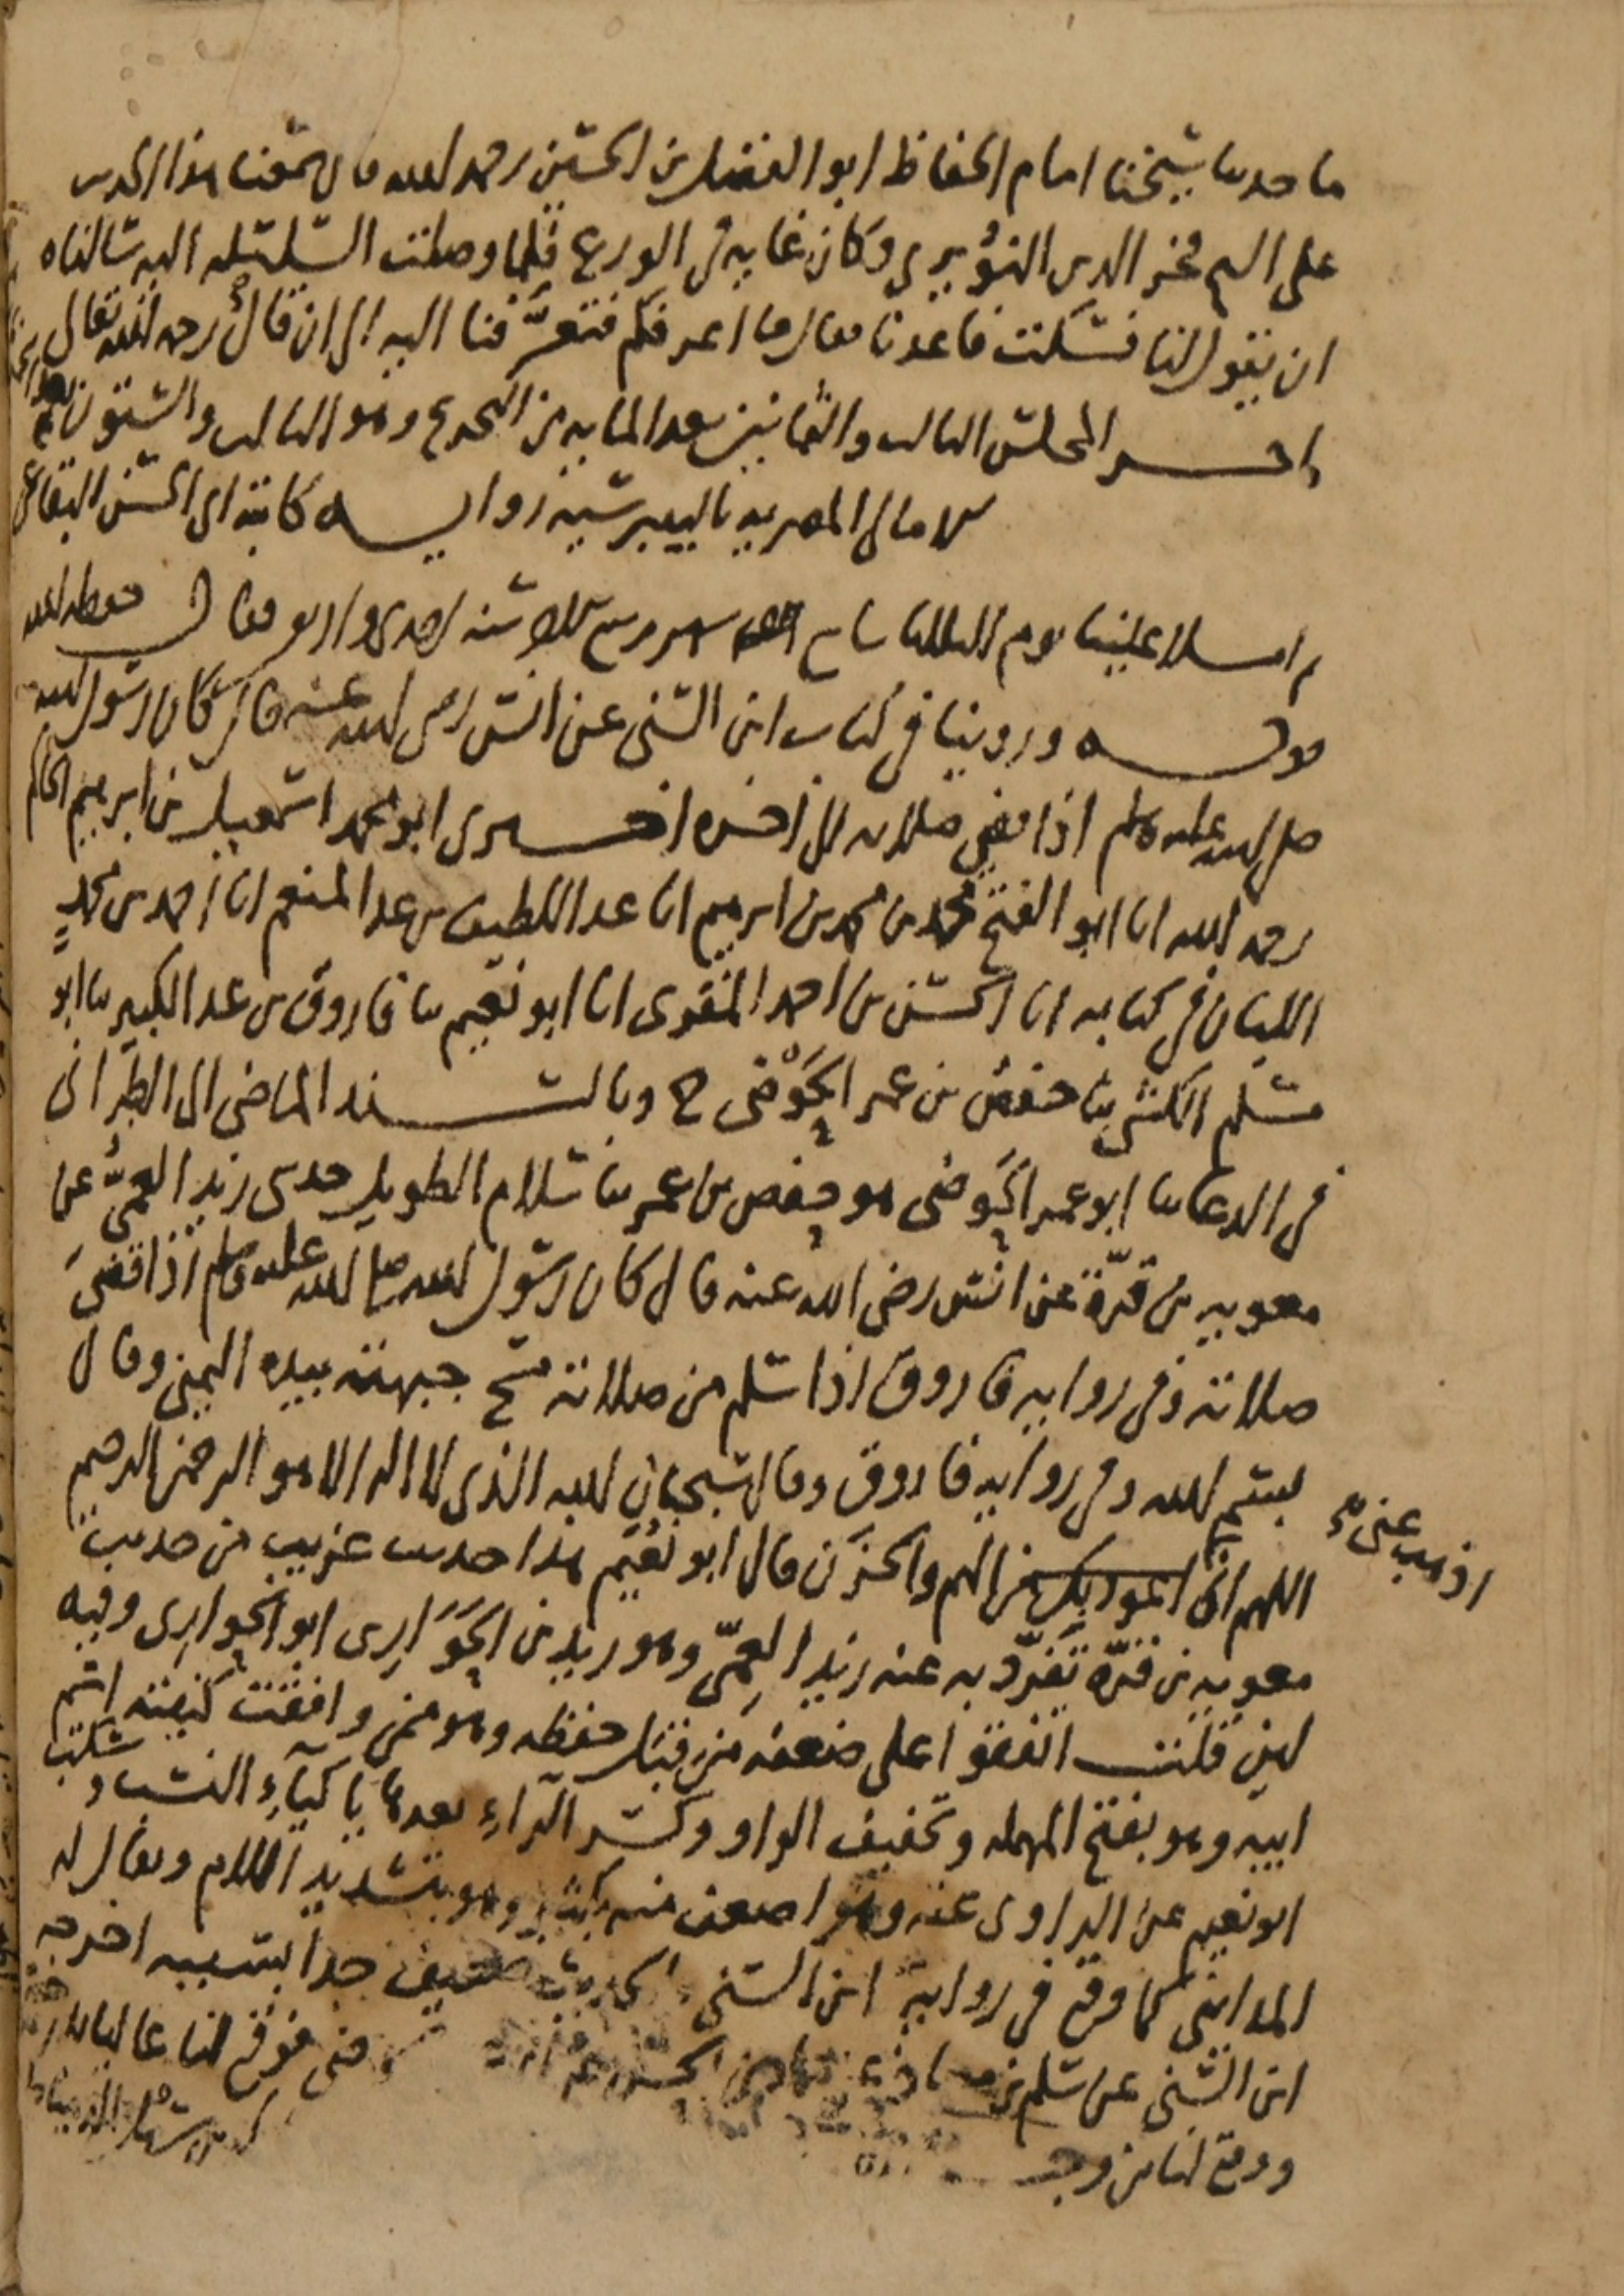 ما حدثنا شيخنا امام الحفاظ ابو الفضل بن الحسين رحمه الله قال سمعنا هذا الحديث
على الشيخ فخر الدين النويري وكان غاية في الورع فلما وصلت السلسلة اليه سالناه
ان يقول لنا فسكت فاعدنا فقال ما اعرفكم فتعرفنا اليه الى ان قال رحمه الله تعالى
اخر المجلس الثالث والثمانين بعد المايه من التخريج وهو الثالث والستون بعد
الامالي المصريه بالبيبرسية رواية كاتبه ابي الحسن البقاعي
ثم املا علينا يوم الثلاثا سابع شهر ربيع الاخر سنة احدى واربعين فقال حفظه الله
قوله وروينا في كتاب ابن السني عن انس رضي الله عنه قال كان رسول الله
صلى الله عليه وسلم اذا قضى صلاته الى اخره اخبرني ابو محمد اسمعيل بن ابرهيم الحاكم
رحمه الله انا ابو الفتح محمد بن محمد بن ابرهيم انا عبد اللطيف بن عبد المنعم انا احمد بن محمد
اللبان في كتابه انا الحسن بن احمد المقري انا ابو نعيم ثنا فاروق بن عبد الكبير ثنا ابو
مسلم الكشي ثنا حفص بن عمر الحوضي ح وبالسند الماضي الى الطبراني
في الدعا ثنا ابو عمر الحوضي هو حفص بن عمر ثنا سلام الطويل حدثني زيد العمي عن
معويه بن قرة عن انس رضي الله عنه قال كان رسول الله صلى الله عليه وسلم اذا قضى
صلاته وفي روايه فاروق اذا سلم من صلاته مسح جبهته بيده اليمنى وقال
بسم الله وفي رواية فاروق وقال سبحان الله الذي لا اله الا هو الرحمن الرحيم
اللهم اني اعوذ بك من الهم والحزن قال ابو نعيم هذا حديث غريب من حديث
اذهب عني
معويه بن قرة تفرد به عنه زيد العمي وهو زيد بن الحواري ابو الحواري وفيه
لين قلت اتفقوا على ضعفه من قبل حفظه وهو ممن وافقت كنيته اسم
ابيه وهو بفتح المهمله وتخفيف الواو وكسر الراء بعدها ياء كياء النسب وسكت
ابو نعيم عن الراوي عنه وهو اضعف منه بكثير وهو بتشديد اللام ويقال له
المدايني كما وقع في رواية ابن السني الحديث ضعيف جدا بسببه اخرجه
ابن السني عن سلم بن معاذ عن فوقع لنا عاليا
ووقع لنا من وجه